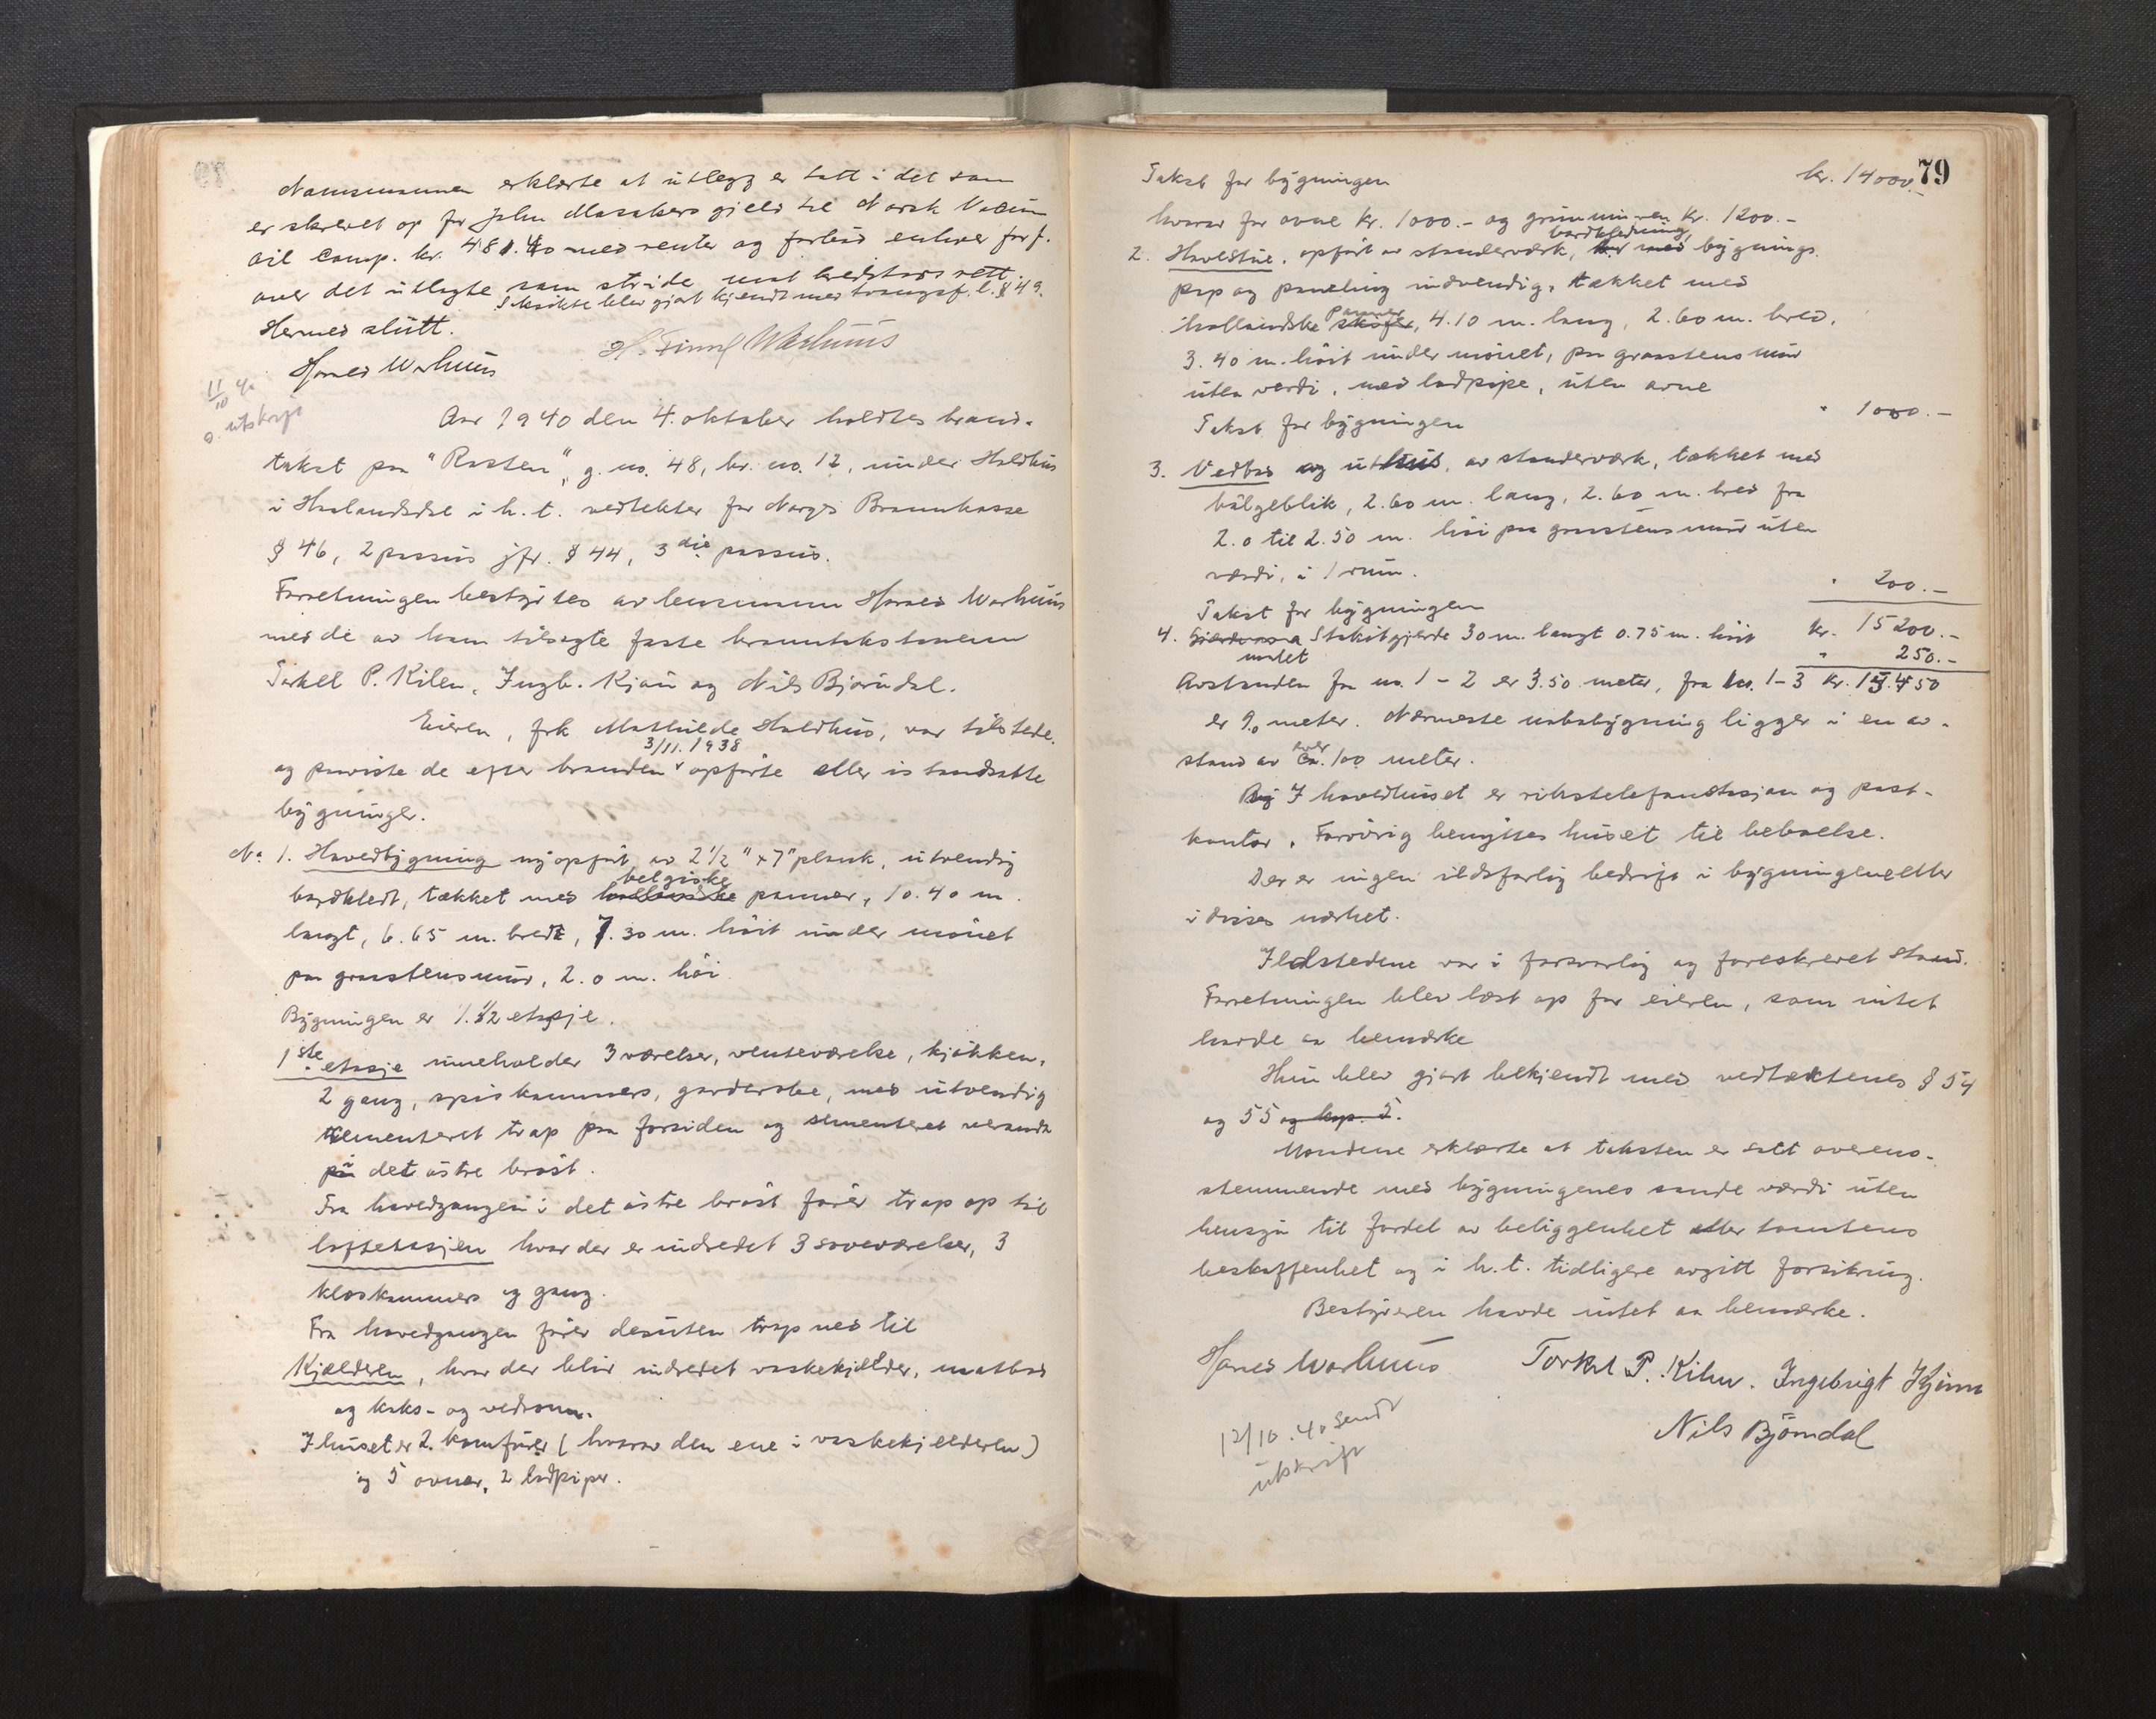 Namsmannen erklærte at utlegg er tatt i det som
er skrevet op for John Massakers gjeld til Norsk Vacuum
Oil Comp. kr. 481.40 med renter og forbød enhver forf.
over det utlagte som stride mot kreditors rett.
Saksøkte blev gjort kjendt med tvangsf. l. § 49.
Hermed slutt.
Hannes Warhuus H. Finnℓ Warhuus
11/10 40
utskrift
Aar 1940 den 4. oktober holdtes brand-
takst paa "Rasten", g. no. 48, br. no. 12, under Holdhus
i Haalandsdal i h.t. vedtekter for Norges Brannkasse
§ 46, 2 passus jfr. § 44, 3die passus.
Forretningen bestyrtes av lensmann Hannes Warhuus
med de av ham tilsagte faste branntakstmenn
Torkel P. Kilen, Ingb. Kjøn og Nils Bjørndal.
Eieren, frk Mathilde Holdhus, var tilstede
3/11. 1938
og paaviste de efter branden opførte eller istandsatte
bygninger.
No 1. Hovedbygning nyopført av 2 1/2" x 7" plank, utvendig
belgiske
bordkledt, tækket med hollandske panner, 10.40 m.
langt, 6.65 m. bredt, 7.30 m. höit under mönet
paa graastensmur, 2.0 m. höi
Bygningen er 1. 1/2 etasje.
1ste etasje inneholder 3 værelser, venteværelse, kjökken,
2 gang, spiskammers, garderobe, med utvendig
sementeret trap paa forsiden og sementeret veranda
på i det østre bröst.
Fra hovedgangen i det østre bröst förer trap op til
loftetasjen hvor der er indredet 3 soveværelser, 3
kleskammers og gang.
Fra hovedgangen förer desuten trap ned til
Kjælderen, hvor der blir indredet vaskekjelder, matbod
og koks- og vedrom.
I huset er 2 komfürer (hvorav den ene i vaskekjelderen)
og 5 ovner, 2 lodpiper.
79
Takst for bygningen kr. 14000.-
hvorav for ovne kr. 1000.- og grunnmuren kr. 1200.-
bordkledning,
2. Havestue, opfört av stenderværk, med bygnings-
pap og paneling indvendig, tækket med
panner
hollandske skifer, 4.10 m. lang, 2.60 m. bred,
3.40 m. höit under mönet, paa graastensmur
uten verdi, med lodpipe, uten ovne
Takst for bygningen " 1000.-
3. Vedbod og uthus, av stenderværk, tækket med
bölgeblik, 2.60 m. lang, 2.60 m. bred fra
2.0 til 2.50 m. höi paa graastensmur uten
værdi, i 1 rum.
Takst for bygningen " 200.-
kr. 15200.-
4. Stakitgjerde 30 m. langt 0.75 m. höit
malet " 250.-
Avstanden fra no. 1 - 2 er 3.50 meter, fra no. 1 - 3 kr. 15.450
er 9.0 meter. Nærmeste nabobygning ligger i en av-
over
stand av ca. 100 meter.
I hovedhuset er rikstelefonstasjon og post-
kontor. Forövrig benyttes huset til beboelse.
Der er ingen ildsfarlig bedrift i bygningene eller
i disses nærhet.
Ildstedene var i forsvarlig og foreskrevet stand.
Forretningen blev læst op for eieren, som intet
havde aa bemærke
Hun blev gjort bekjendt med vedtæktenes § 54
og 55 og kap. 5.
Mændene erklærte at taksten er satt overens-
stemmende med bygningenes sande værdi uten
hensyn til fordel av beliggenhet eller tomtens
beskaffenhet og i h.t. tidligere avgitt forsikring.
Bestyreren havde intet aa bemærke.
Hannes Warhuus Torkel P. Kilen. Ingebrigt Kjönn
Nils Björndal
12/10.40 sendt
utskrift